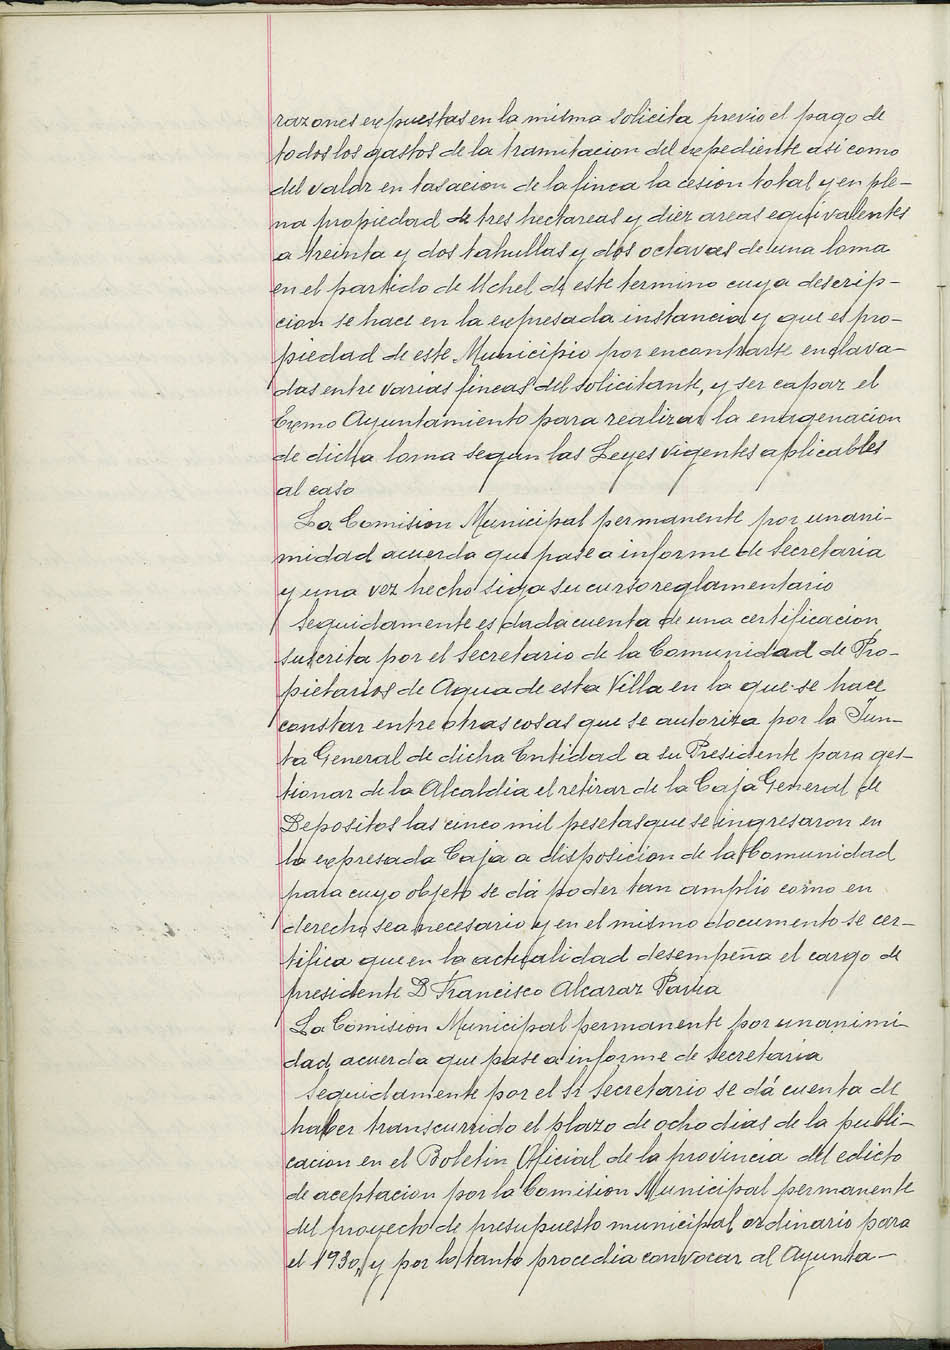 razones expuestas en la misma solicita previo el pago de
todos los gastos de la tramitacion del expediente asi como
del valor en tasacion de la finca la cesion total y en ple-
na propiedad de tres hectareas y diez areas equivalentes
a treinta y dos tahullas y dos octavas de una loma
en el partido de Uchel de este termino cuya descrip-
cion se hace en la expresada instancia y que es pro-
piedad de este Municipio por encontrarse enclava-
das entre varias fincas del solicitante, y ser capaz el
Excmo Ayuntamiento para realizar la enagenacion
de dicha loma segun las Leyes vigentes aplicables
al caso
La Comision Municipal permanente por unani-
midad acuerda que pase a informe de Secretaria
y una vez hecho siga su curso reglamentario
Seguidamente es dada cuenta de una certificacion
suscrita por el Secretario de la Comunidad de Pro-
pietarios de Agua de esta Villa en la que se hace
constar entre otras cosas que se autoriza por la Jun-
ta General de dicha Entidad a su Presidente para ges-
tionar de la Alcaldia el retirar de la Caja General de
Depositos las cinco mil pesetas que se ingresaron en
la expresada Caja a disposicion de la Comunidad
para cuyo objeto se dá poder tan amplio como en
derecho sea necesario y en el mismo documento se cer-
tifica que en la actualidad desempeña el cargo de
presidente D Francisco Alcaraz
La Comision Municipal permanente por unanimi-
dad acuerda que pase a informe de Secretaria
Seguidamente por el Sr Secretario se dá cuenta de
haber transcurrido el plazo de ocho dias de la publi-
cacion en el Boletin Oficial de la provincia del edicto
de aceptacion por la Comision Municipal permanente
del proyecto de presupuesto municipal ordinario para
el 1930, y por lo tanto procedia convocar al Ayunta-